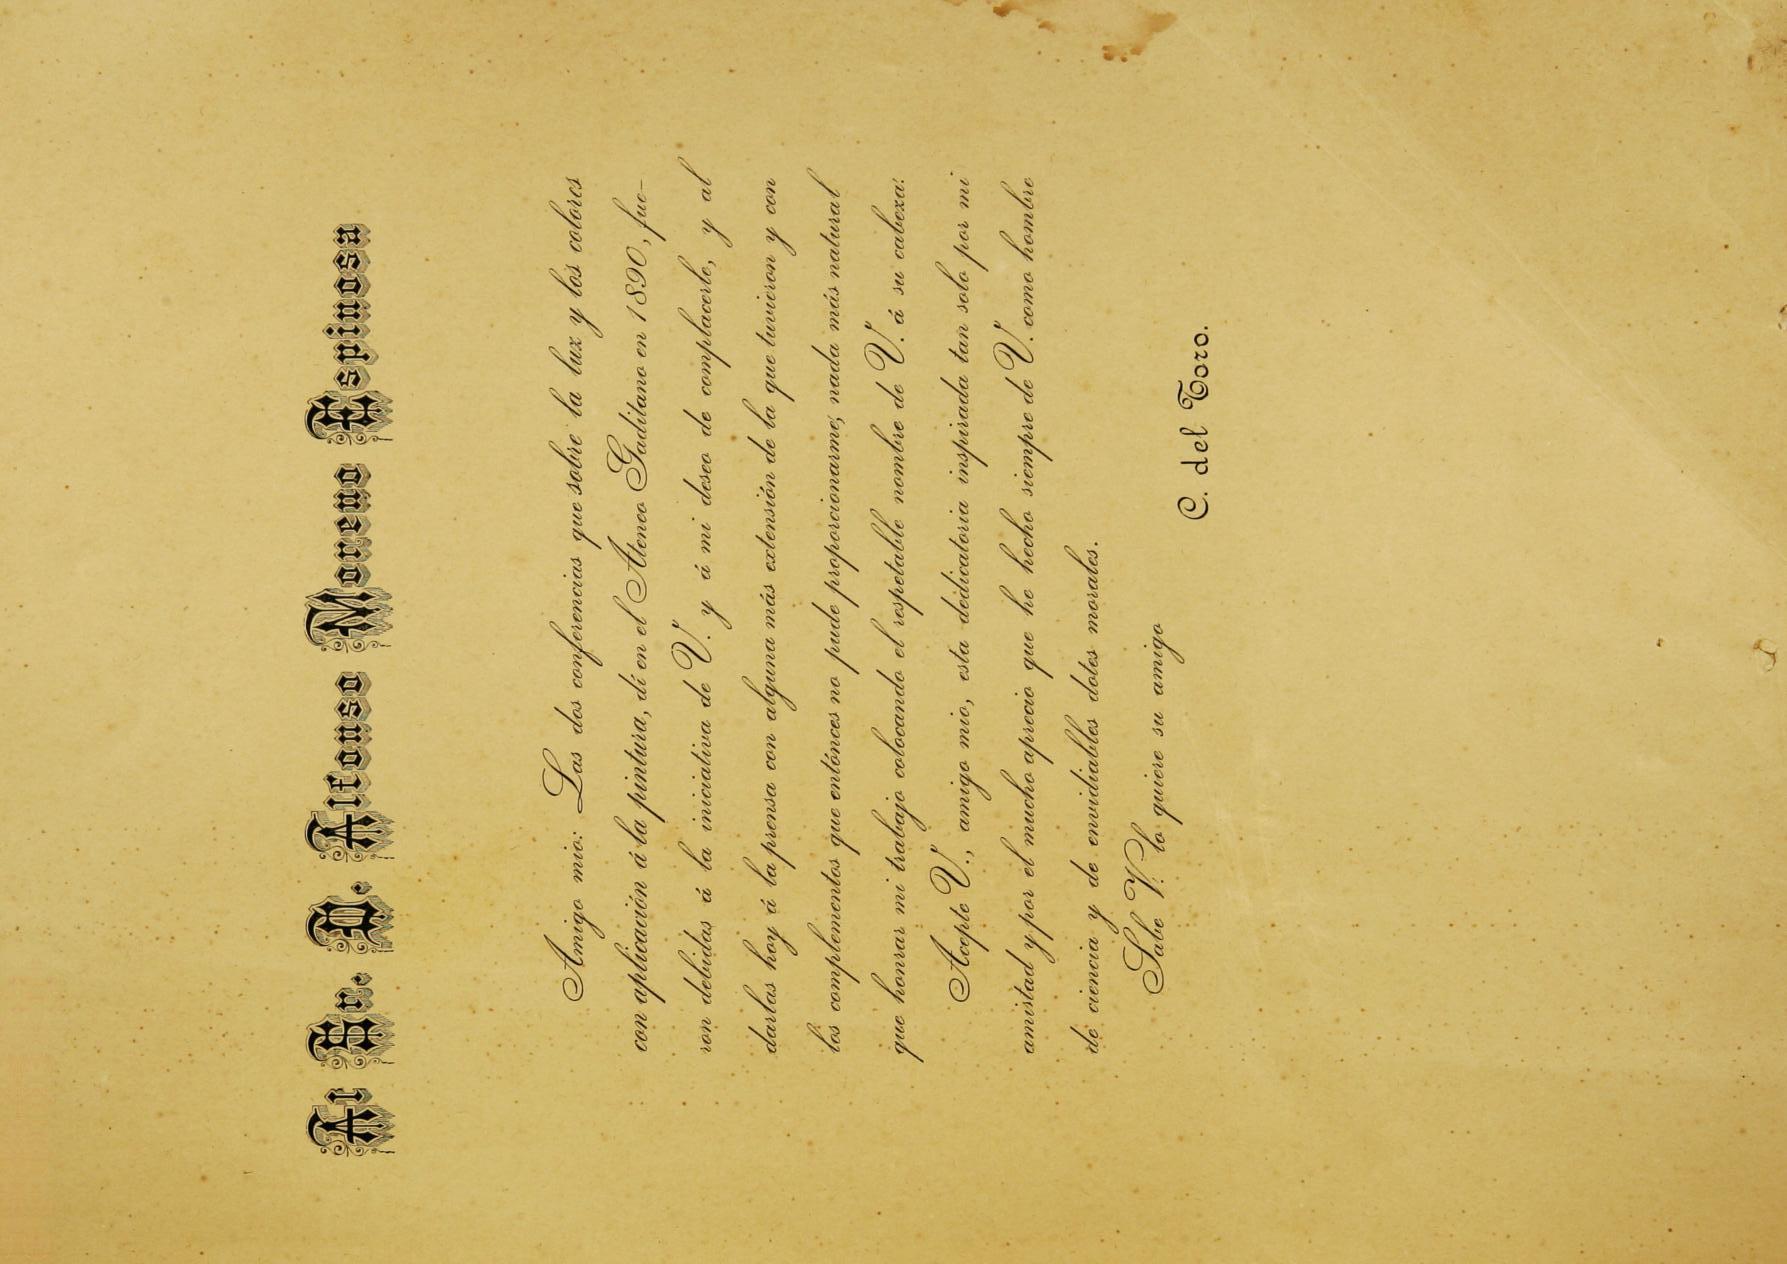 Al Sr. D. Alfonso Moreno Espinosa
Amigo mio: Las dos conferencias que sobre la lux y los colores
con aplicación á la pintura, dí en el Ateneo Gaditano en 1890, fue-
ron debidas á la iniciativa de V. y á mi deseo de complacerle, y al
darlas hoy á la prensa con alguna más extensión de la que tuvieron y con
los complementos que entónces no pude proporcionarme, nada más natural
que honrar mi trabajo colocando el respetable nombre de V. á su cabexa.
Acepte V., amigo mio, esta dedicatoria inspirada tan solo por mi
amistad y por el mucho aprecio que he hecho siempre de V. como hombre
de ciencia y de envidiables dotes morales.
Sabe V. lo quiere su amigo
C. del Toro.